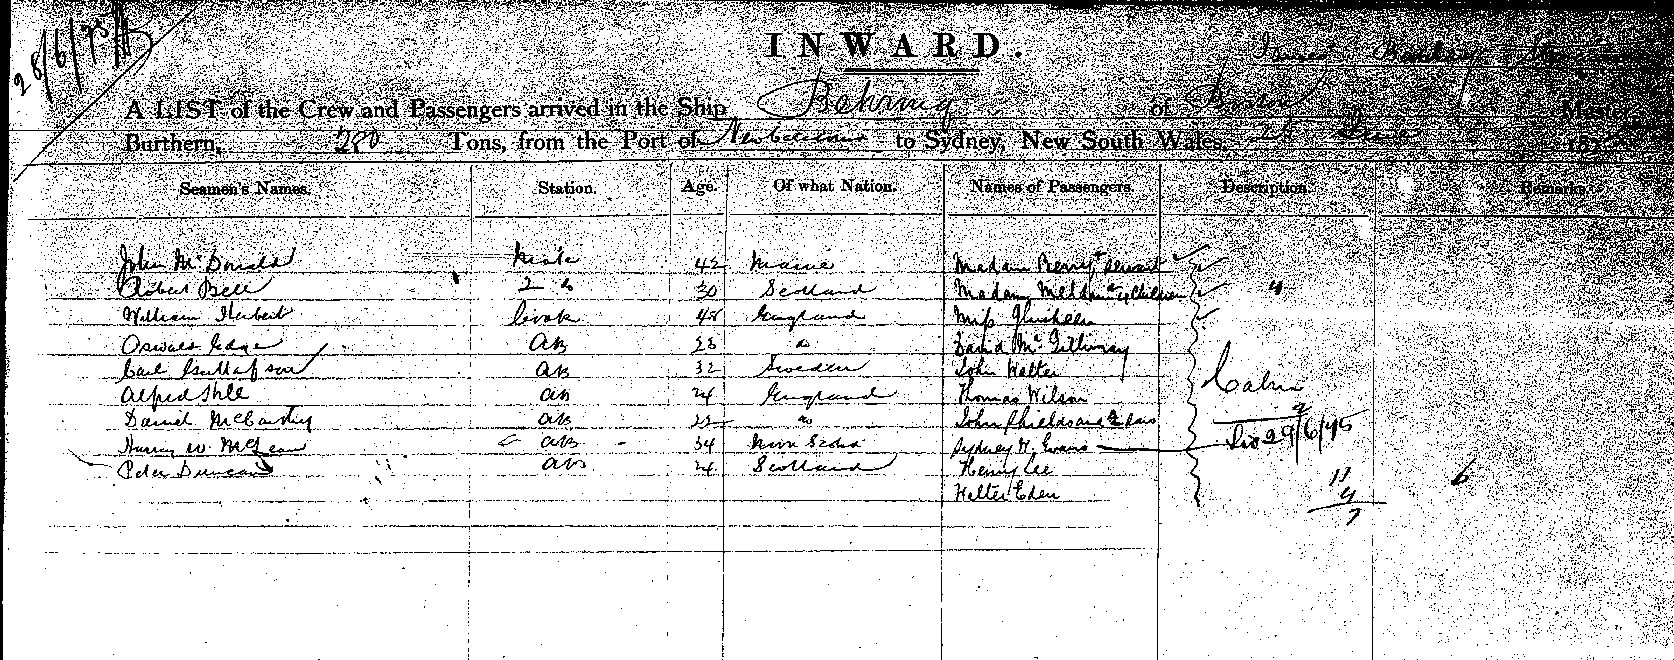 28/6/75
INWARD.
A LIST of the Crew and Passengers arrived in the Ship of Master
Burthern, 280 Tons, from the Port of to Sydney, New South Wales, 28 June 187
Seamen's Names. Station. Age. Of what Nation. Names of Passengers. Description. Remarks.
John McDonald Mate 42 Madam Berry + servant
Robert Bell 2 " 30 Scotland Madam children 4
William Herbert Cook 48 England Miss
Oswald Edge AB 28 " David McGillivray
Carl Gustafson AB 32 Sweden John Walter
Alfred AB 24 England Thomas Wilson Cabin
Daniel McCarthy AB 22 " John
Harry W. McLean AB 34 Nova Scotia Sydney H. Evans 29/6/75
Peter Duncan AB 24 Scotland Henry Lee 11 6
Walter Eden 4
7